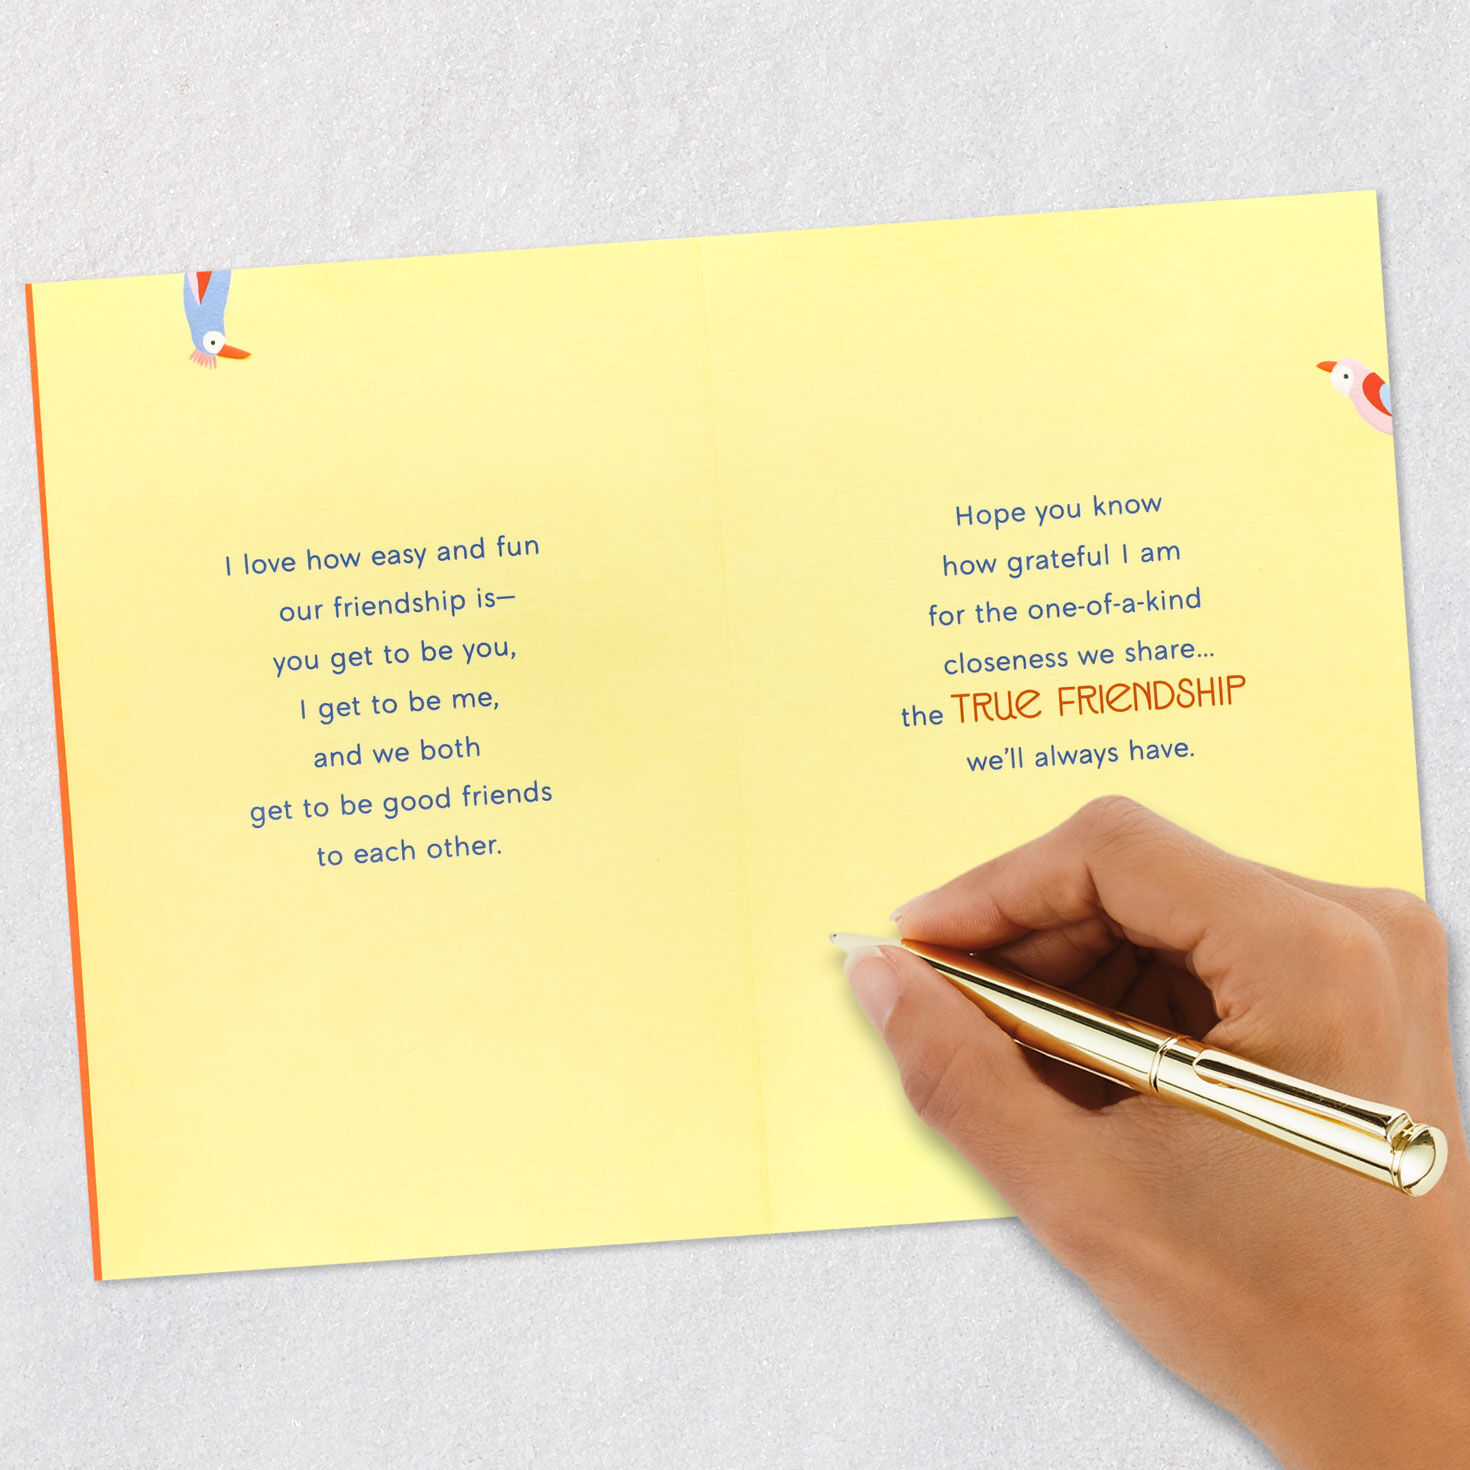 I love how easy and fun
our friendship is—
you get to be you,
I get to be me,
and we both
get to be good friends
to each other.
Hope you know
how grateful I am
for the one-of-a-kind
closeness we share...
the TRUE FRIENDSHIP
we'll always have.